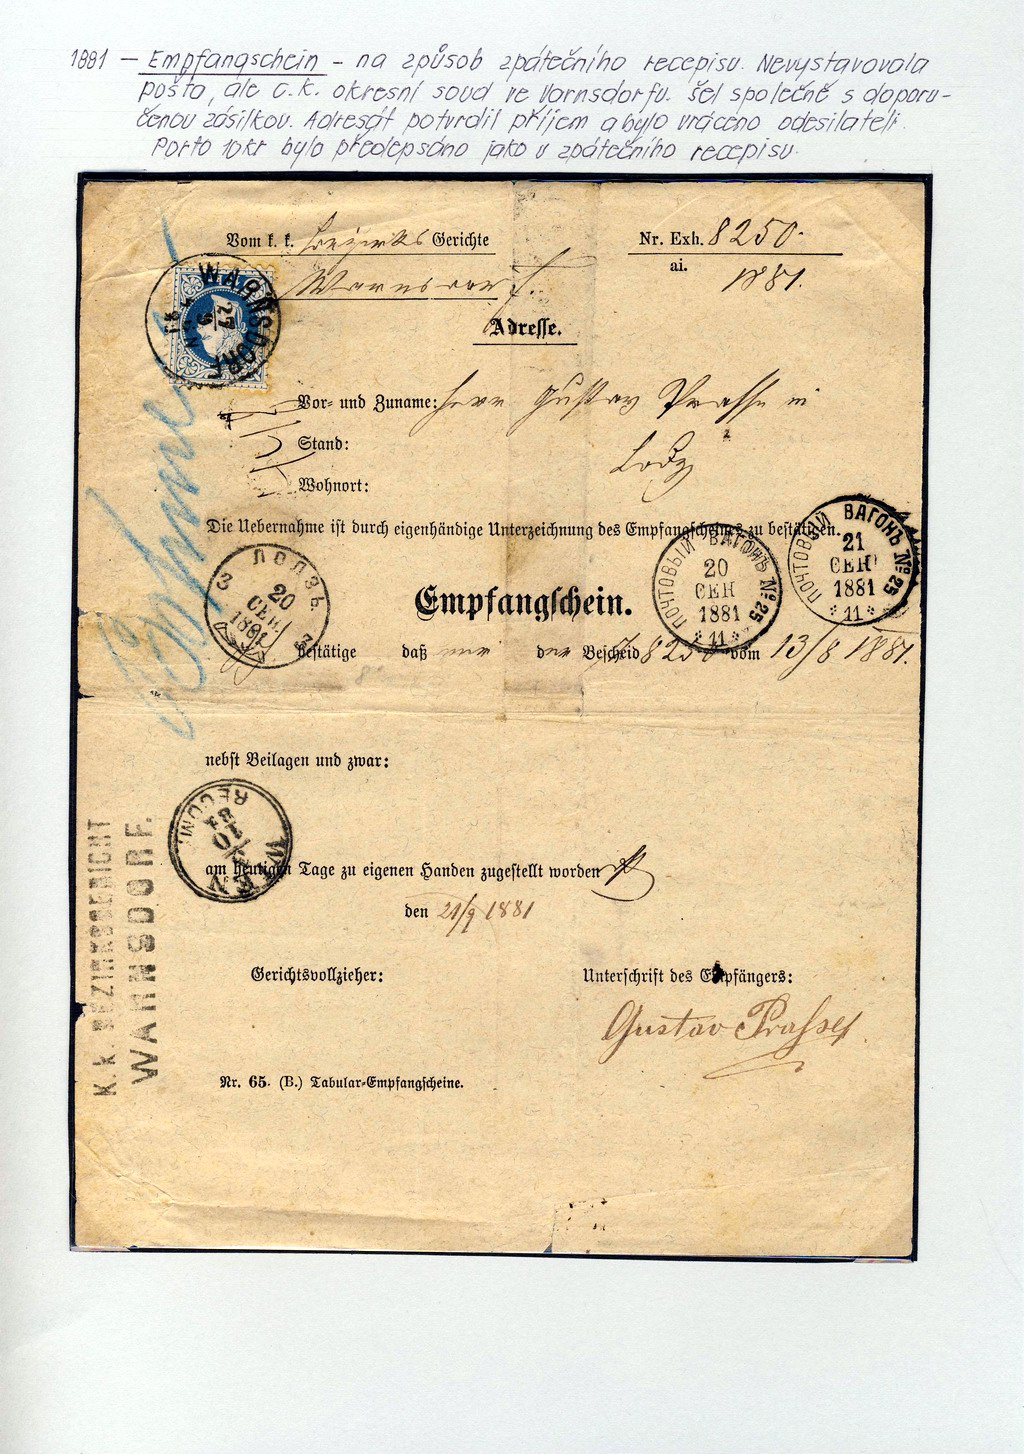 1881 — Empfangschein - na způsob zpátečního recepisu. Nevystavovala
pošta, ale c.k. okresní soud ve Varnsdorfu. šel společně s doporu-
čenou zásilkou. Adresát potvrdil příjem a bylo vráceno odesilateli.
Porto 10kr bylo předepsáno jako u zpátečního recepisu.
Vom k. k. Bezirks Gerichte
Nr. Exh. 8250.
Warnsdorf.
ai. 1881.
WARNSDORF
27
9
Adresse.
Vor- und Zuname: Herr Gustav Prasse in
Stand:
Lodz
Wohnort:
Die Uebernahme ist durch eigenhändige Unterzeichnung des Empfangscheines zu bestätigen.
ПОЧТОВЫЙ ВАГОНЪ № 25
21
СЕН
1881
11
ПОЧТОВЫЙ ВАГОНЪ № 25
20
СЕН
1881
11
ЛОДЗЬ
3
20
СЕН.
1881
3
Empfangschein.
bestätige daß mir der Bescheid 8250 vom 13/8 1881.
nebst Beilagen und zwar:
WIEN
RECOM.
am heutigen Tage zu eigenen Handen zugestellt worden
den 21/9 1881
Gerichtsvollzieher:
Unterschrift des Empfängers:
Gustav Prasse
K. k. BEZIRKSGERICHT
WARNSDORF.
Nr. 65. (B.) Tabular-Empfangscheine.